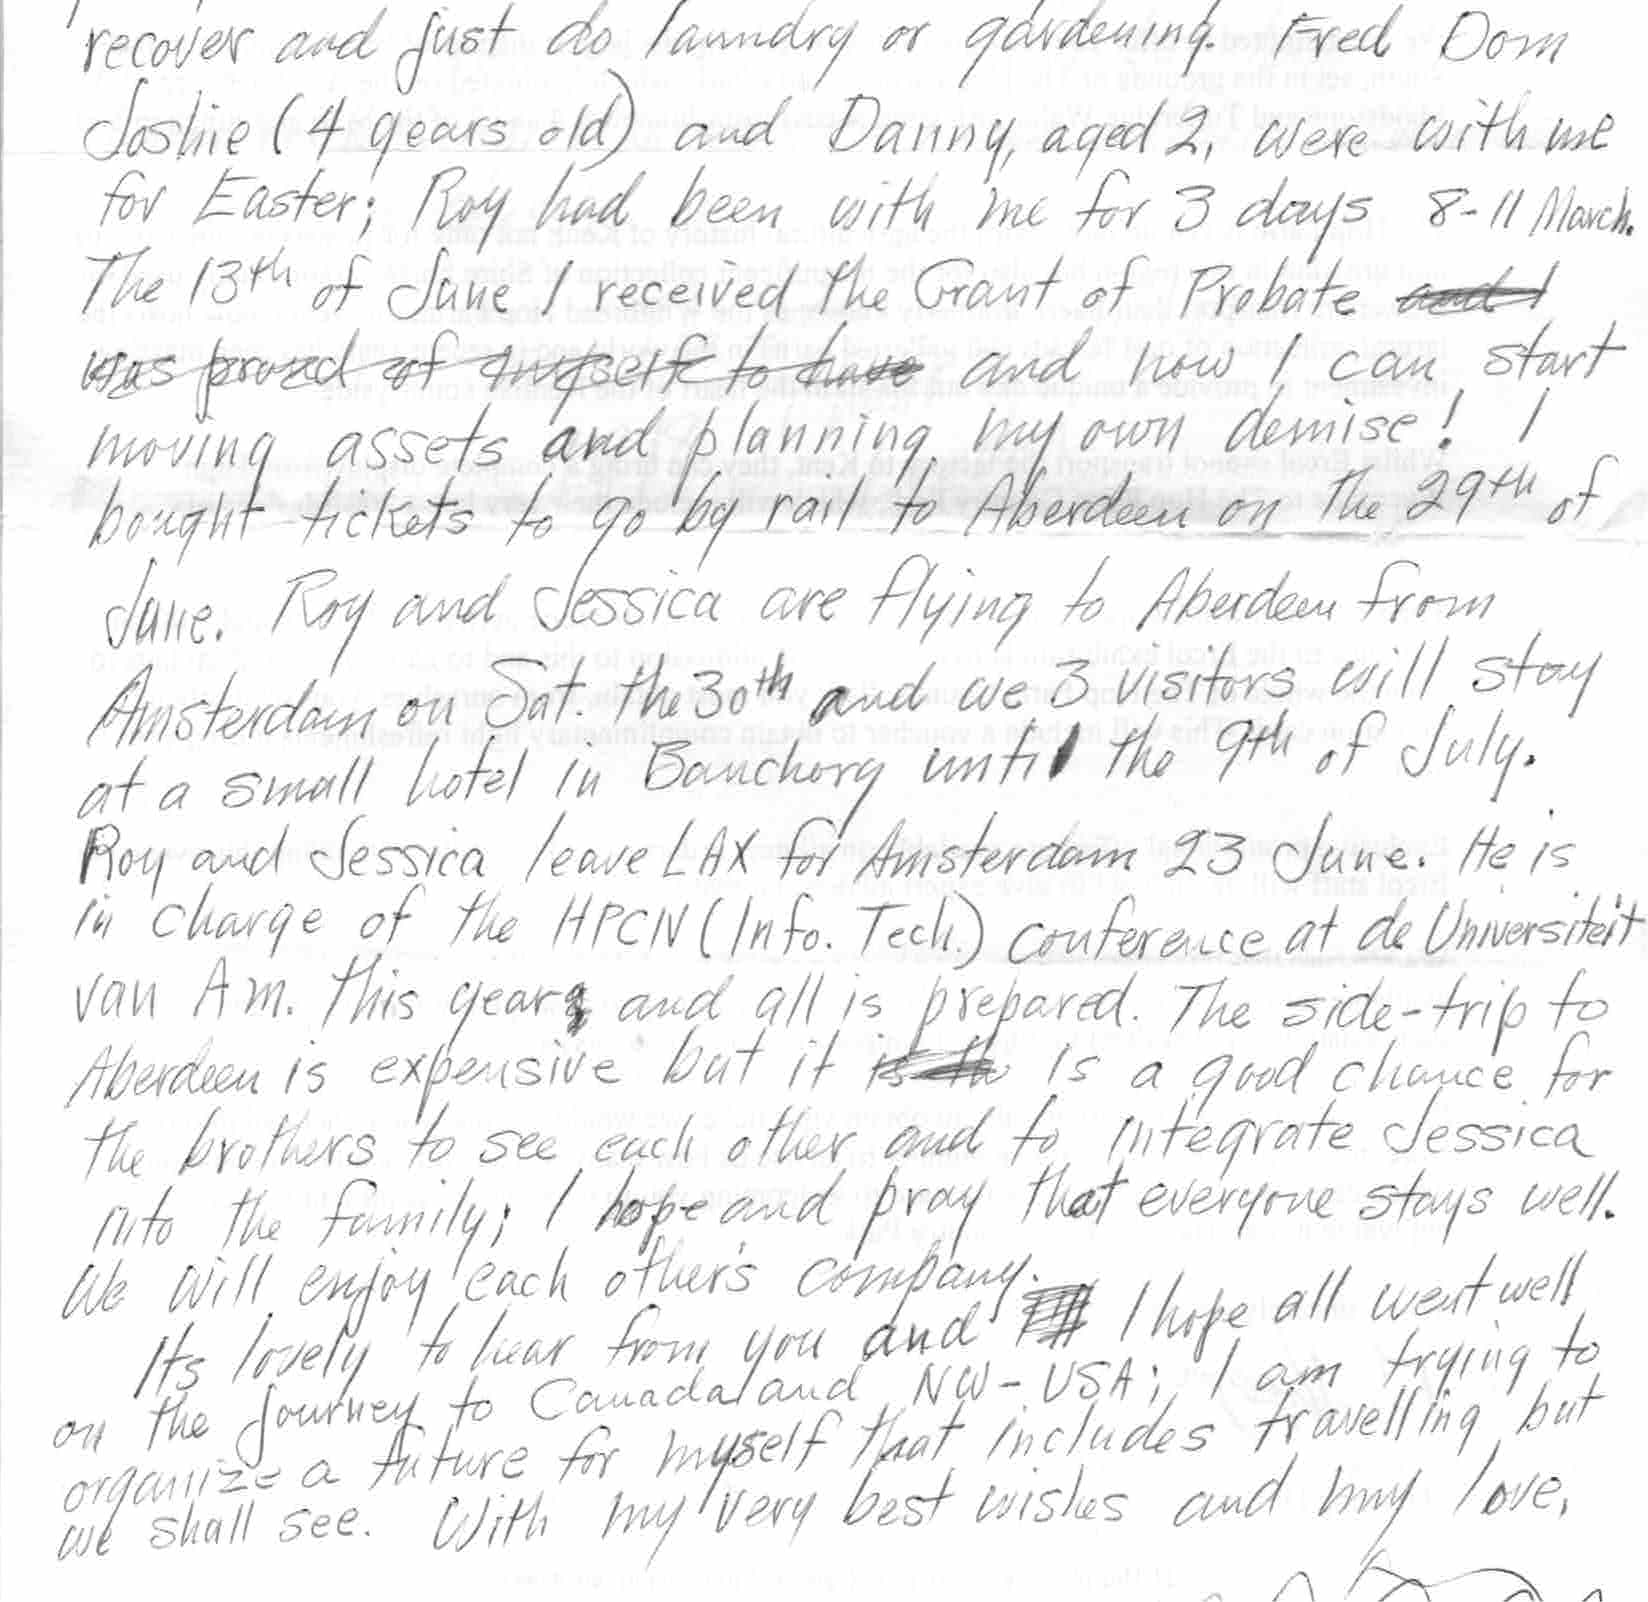 recover and just do laundry or gardening. Fred Dom
Joshie (4 years old) and Danny, aged 2, were with me
for Easter; Roy had been with me for 3 days 8-11 March.
The 13th of June I received the Grant of Probate and I
was proud of myself to have and now I can start
moving assets and planning my own demise! I
bought tickets to go by rail to Aberdeen on the 29th of
June. Roy and Jessica are flying to Aberdeen from
Amsterdam on Sat. the 30th and we 3 visitors will stay
at a small hotel in Banchory until the 9th of July.
Roy and Jessica leave LAX for Amsterdam 23 June. He is
in charge of the HPCN (Info. Tech.) conference at de Universiteit
van Am. this year, and all is prepared. The side-trip to
Aberdeen is expensive but it is the is a good chance for
the brothers to see each other and to integrate Jessica
into the family; I hope and pray that everyone stays well.
We will enjoy each other's company.
Its lovely to hear from you and I hope all went well
on the journey to Canada and NW-USA; I am trying to
organize a future for myself that includes travelling but
we shall see. With my very best wishes and my love,